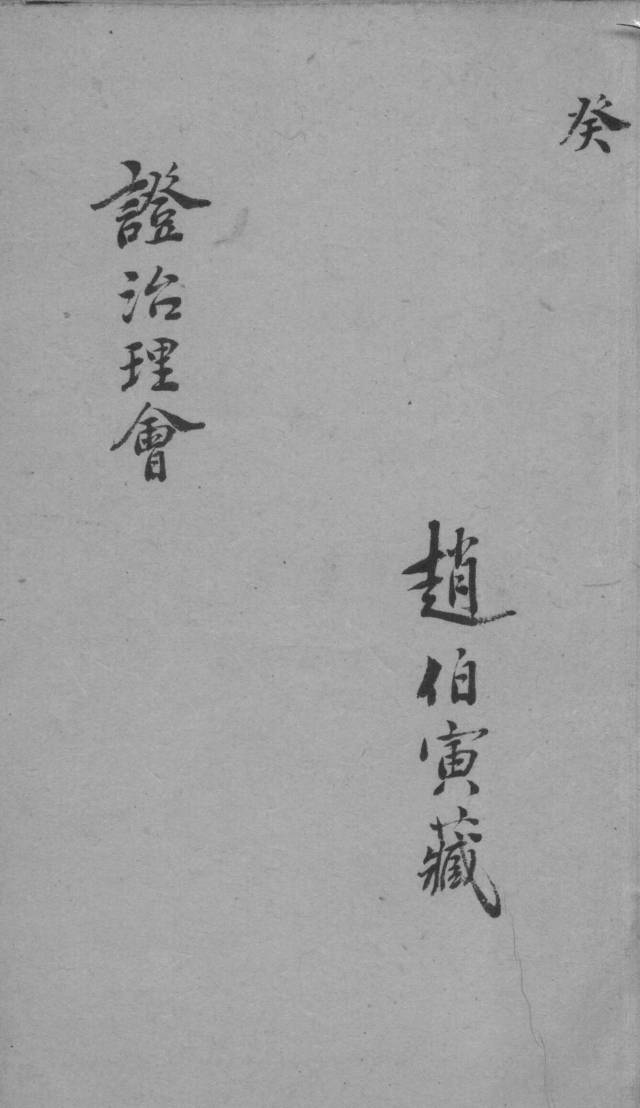 癸
趙伯寅藏
證治理會